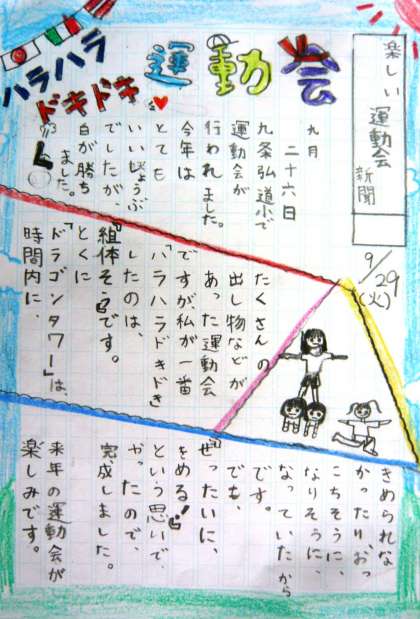 楽しい 運動会 新聞
9/29
(火)
ハラハラ
ドキドキ
運動会
九月
二十六日
九条弘道小で
運動会が
行われました。
今年は
とても
いいしょうぶ
でしたが、
白が勝ち
ました。
たくさんの
出し物などが
あった運動会
ですが、私が一番
「ハラハラドキドキ」
したのは、
組体そうです。
とくに
「ドラゴンタワー」は、
時間内に、
きめられな
かったり、おっ
こちそうに、
なりそうに、
なっていたから
です。
でも、
ぜったいに、
「きめる!」
という思いで、
やったので、
完成しました。
来年の運動会が
楽しみです。